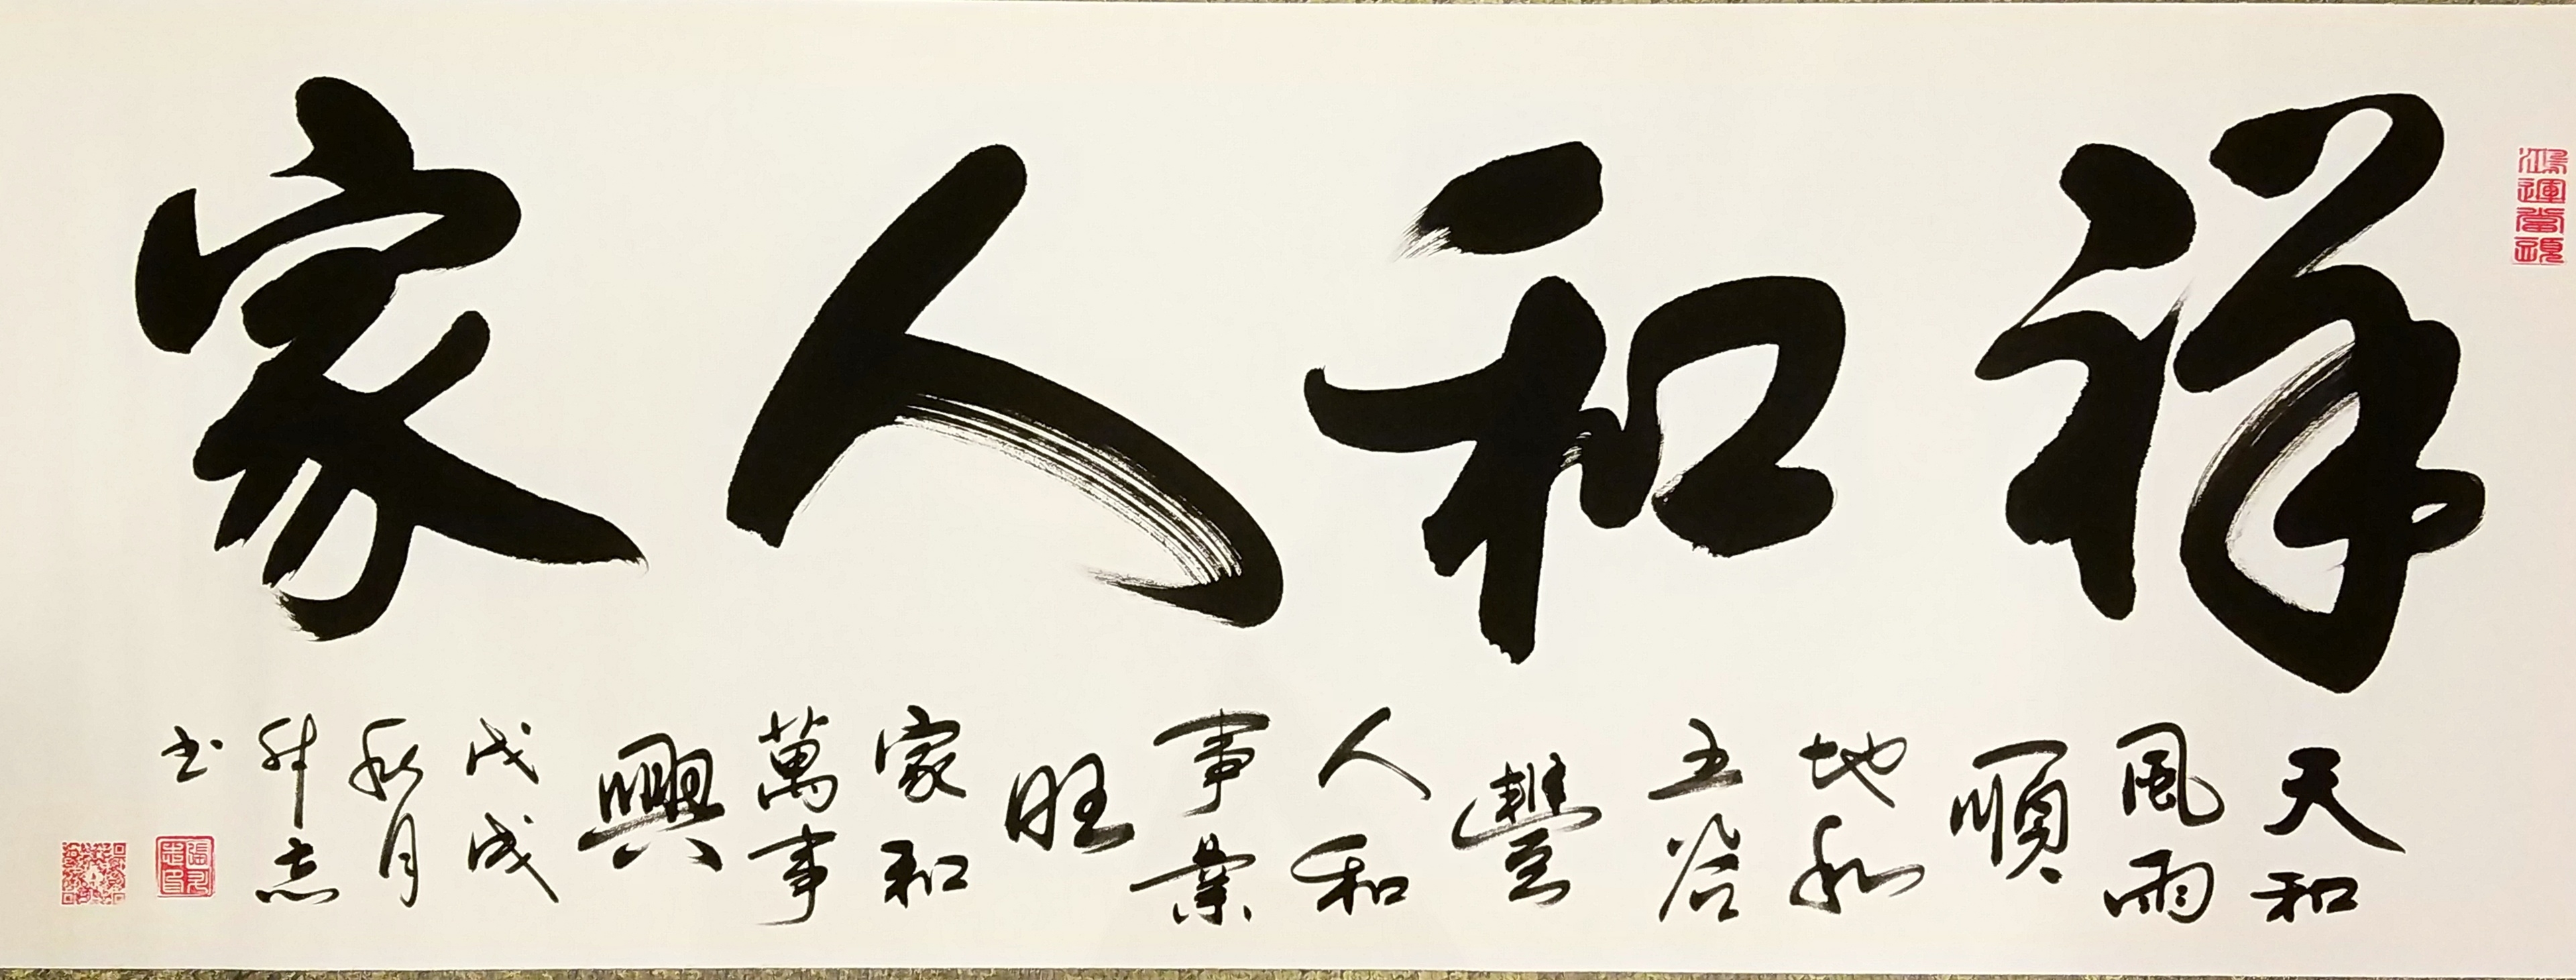 鴻運當頭
祥和人家
天和
風雨
順
地和
五谷
豐
人和
事業
旺
家和
萬事
興
戊戌
秋月
升志
书